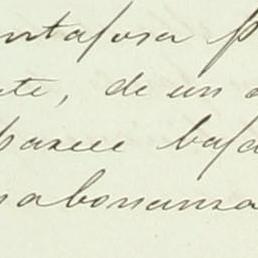 ntafosa
te, de un
parece basa
sabonansa